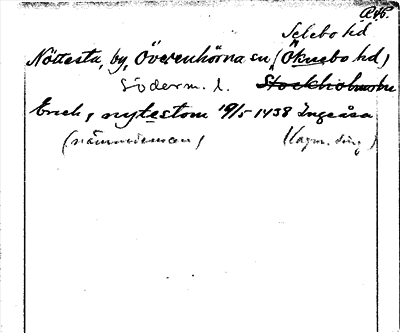 Selebo hd
Nöttesta, by, Överenhörna sn (Öknebo hd)
Söderm. l.
Erich, nytestom 19/5 1438 Ingeåsa
(nämndeman) (lagm. ting)